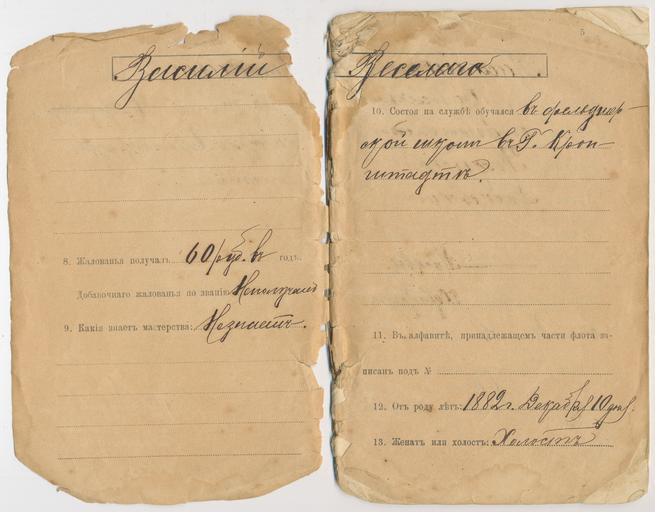 Василій
8. Жалованья получалъ 60 руб. въ годъ.
Добавочнаго жалованья по званію Неполучалъ
9. Какія знаетъ мастерства: Незнаетъ.
5
Веселаго
10. Состоя на службѣ обучался въ фельдшер-
ской школѣ въ Г. Крон-
штадтѣ.
11. Въ алфавитѣ, принадлежащемъ части флота за-
писанъ подъ №
12. Отъ роду лѣтъ: 1882 г. Декабря 10 дня.
13. Женатъ или холостъ: Холостъ